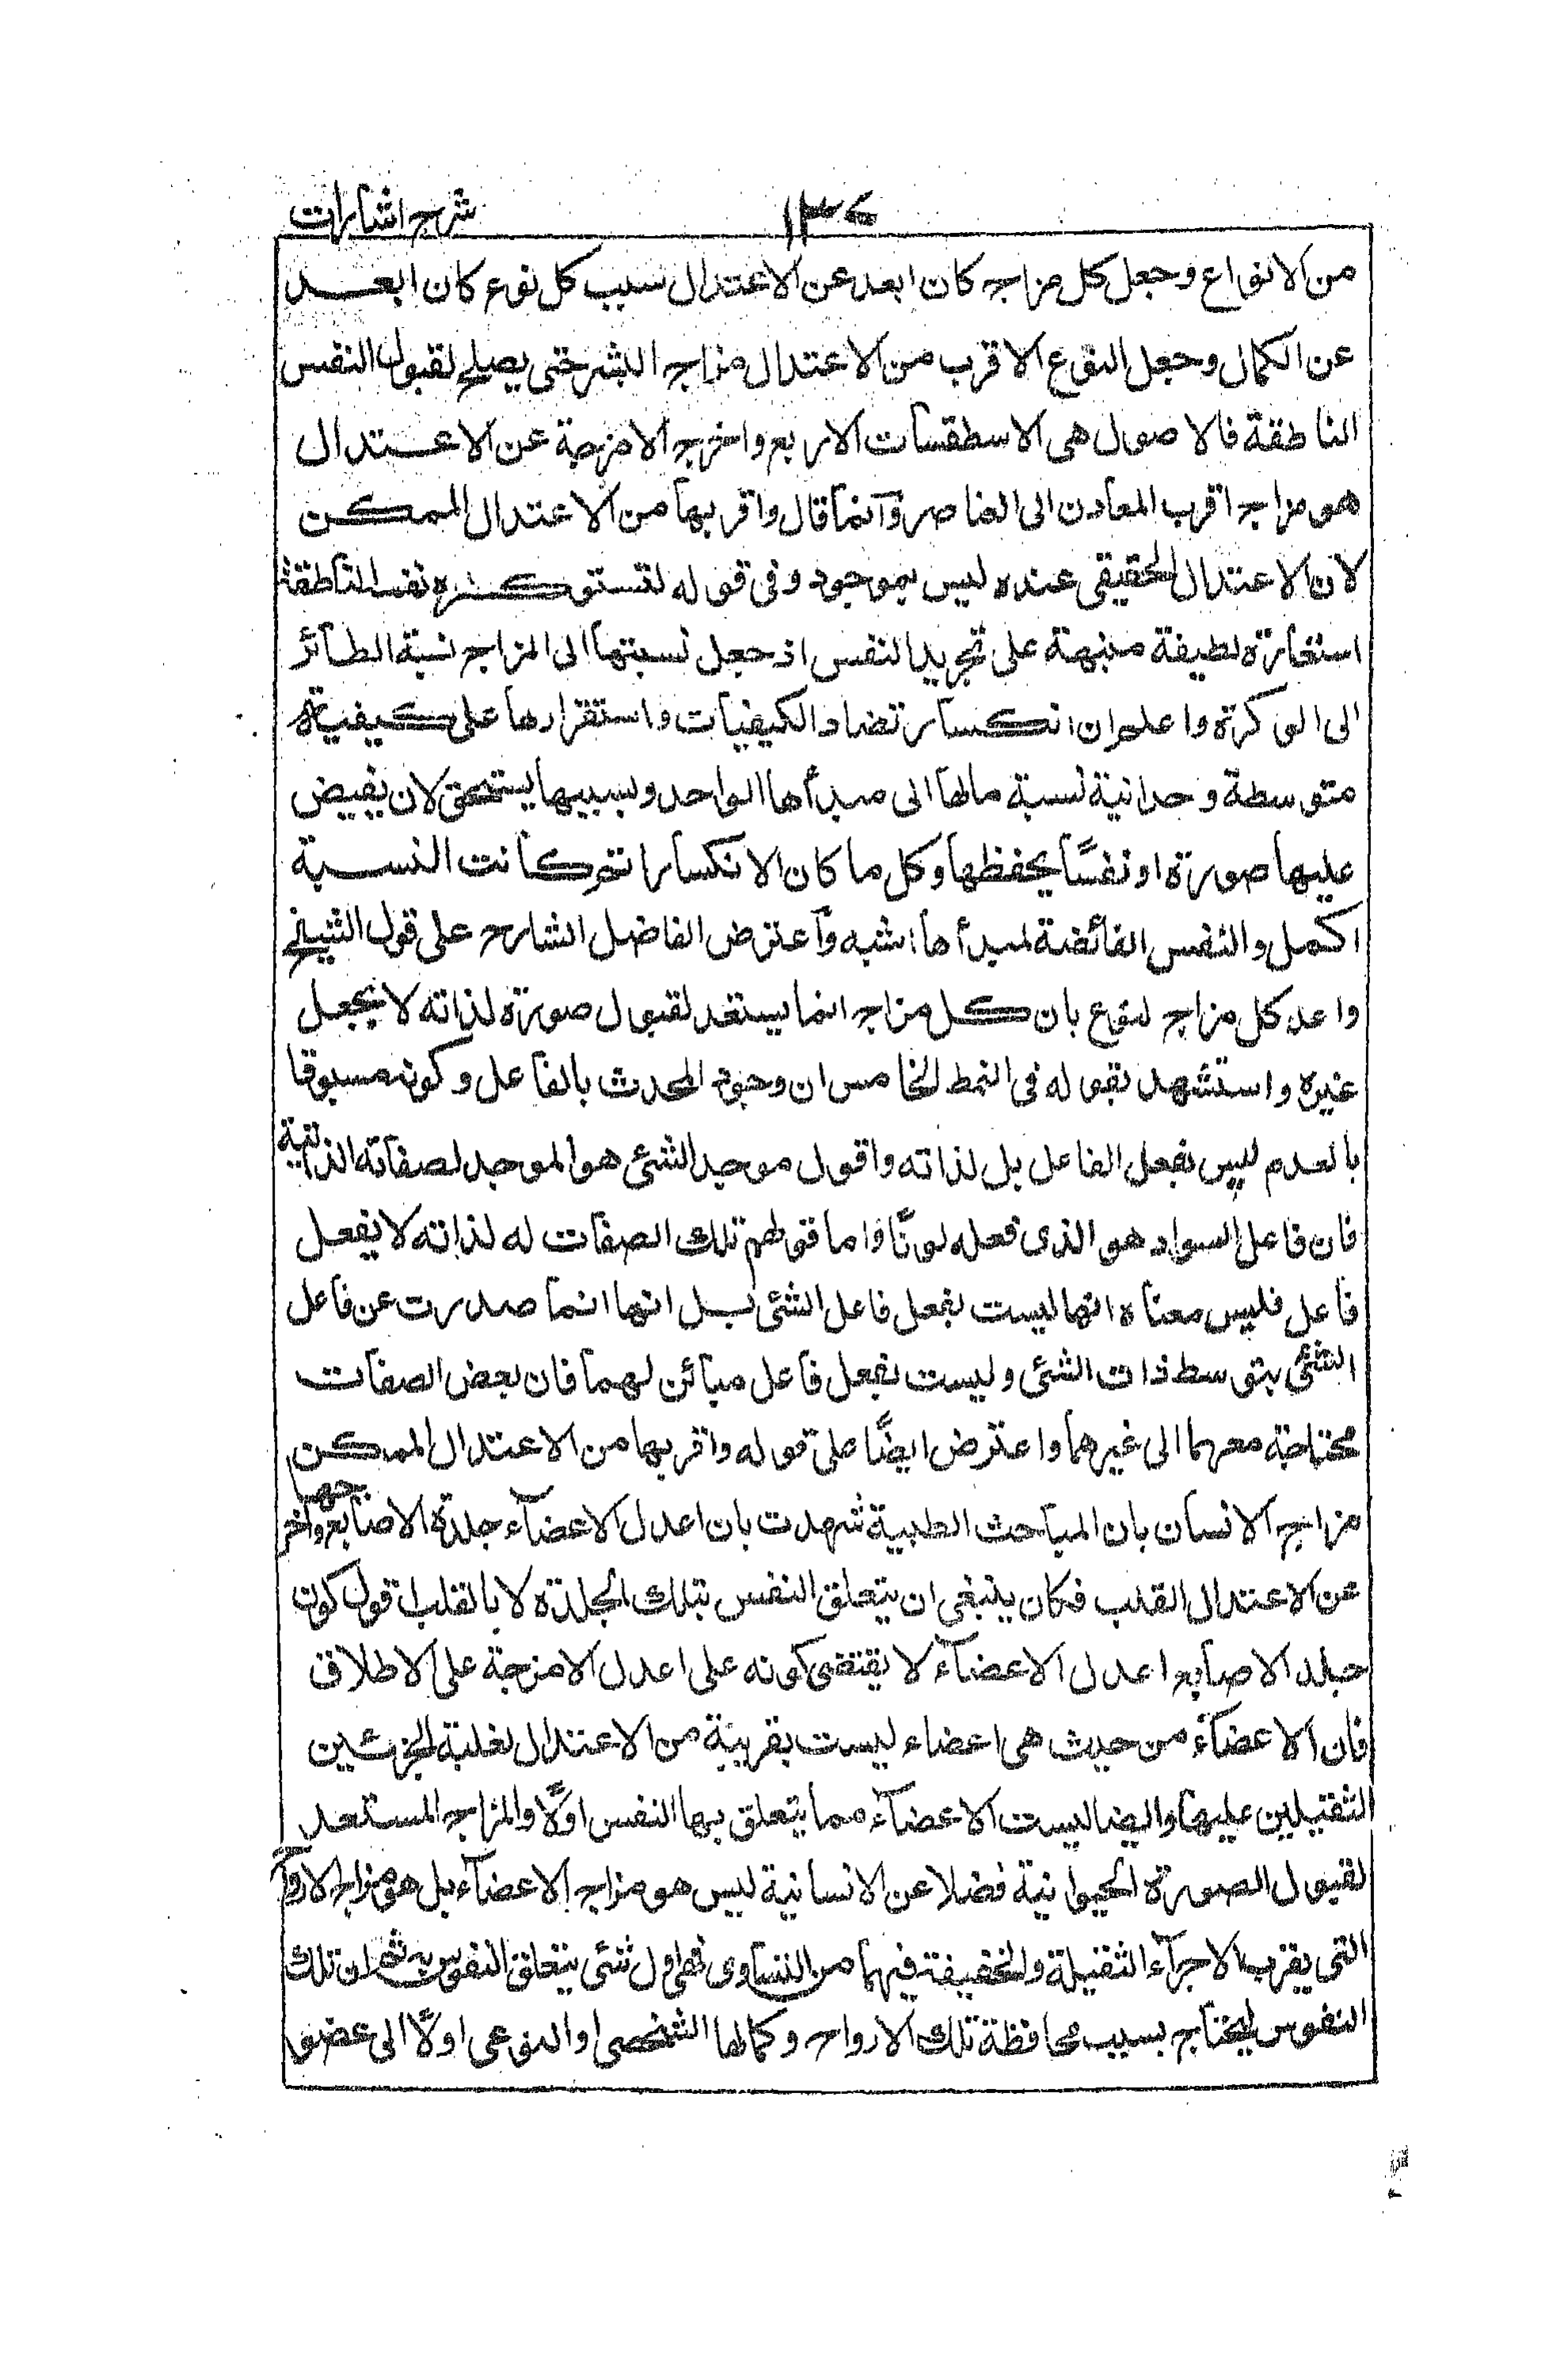 شرح اشارات
من الانواع وجعل كل مزاج كان ابعد عن الاعتدال سبب كل نوع كان ابعد
عن الكمال وجعل النوع الاقرب من الاعتدال مزاج البشر حتى يصلح لقبول النفس
الناطقة فالاصول هى الاسطقسات الاربع واخرج الامزجة عن الاعتدال
هو مزاج اقرب المعادن الى العناصر وآنما قال واقربها من الاعتدال الممكن
لان الاعتدال الحقيقى عنده ليس بموجود وفى قوله لتستوكره نفسه الناطقة
استعارة لطيفة منبهة على تجريد النفس اذ جعل نسبتها الى المزاج نسبة الطائر
الى الوكرة واعلم ان انكسار تضاد الكيفيات واستقرارها على كيفية
متوسطة وحدانية نسبة مالها الى مبدأها الواحد وبسببها يستحق لان يفيض
عليها صورة او نفسًا يحفظها وكل ما كان الانكسار اتم كانت النسبة
اكمل والنفس الفائضة لمبدأها اشبه وآعترض الفاضل الشارح على قول الشيخ
واعد كل مزاج لنوع بان كل مزاج انما يستعد لقبول صورة لذاته لا بجعل
غيره واستشهد بقوله فى النمط الخامس ان وجود المحدث بالفاعل وكونه مسبوقا
بالعدم ليس بفعل الفاعل بل لذاته واقول موجد الشئ هو الموجد لصفاته الذاتية
فان فاعل السواد هو الذى فعله لونًا واما قولهم تلك الصفات له لذاته لا بفعل
فاعل فليس معناه انها ليست بفعل فاعل الشئ بل انها انما صدرت عن فاعل
الشئ بتوسط ذات الشئ وليست بفعل فاعل مبائن لهما فان بعض الصفات
محتاجة معهما الى غيرهما واعترض ايضًا على قوله واقربها من الاعتدال الممكن
مزاج الانسان بان المباحث الطبية شهدت بان اعدل الاعضآء جلدة الاصابع واخرجها
عن الاعتدال القلب فكان ينبغى ان يتعلق النفس بتلك الجلدة لا بالقلب اقول كون
جلد الاصابع اعدل الاعضآء لا يقتضى كونه على اعدل الامزجة على الاطلاق
فان الاعضآء من حيث هى اعضاء ليست بقريبة من الاعتدال لغلبة الجزئين
الثقيلين عليها وايضا ليست الاعضآء مما يتعلق بها النفس اوّلًا والمزاج المستعد
لقبول الصورة الحيوانية فضلا عن الانسانية ليس هو مزاج الاعضآء بل هو مزاج الارواح
التى يقرب الاجزآء الثقيلة والخفيفة فيها من التساوى فهى اول شئ يتعلق النفوس به ثم ان تلك
النفوس ليحتاج بسبب محافظة تلك الارواح وكمالها الشخصى او النوعى اولًا الى عضو